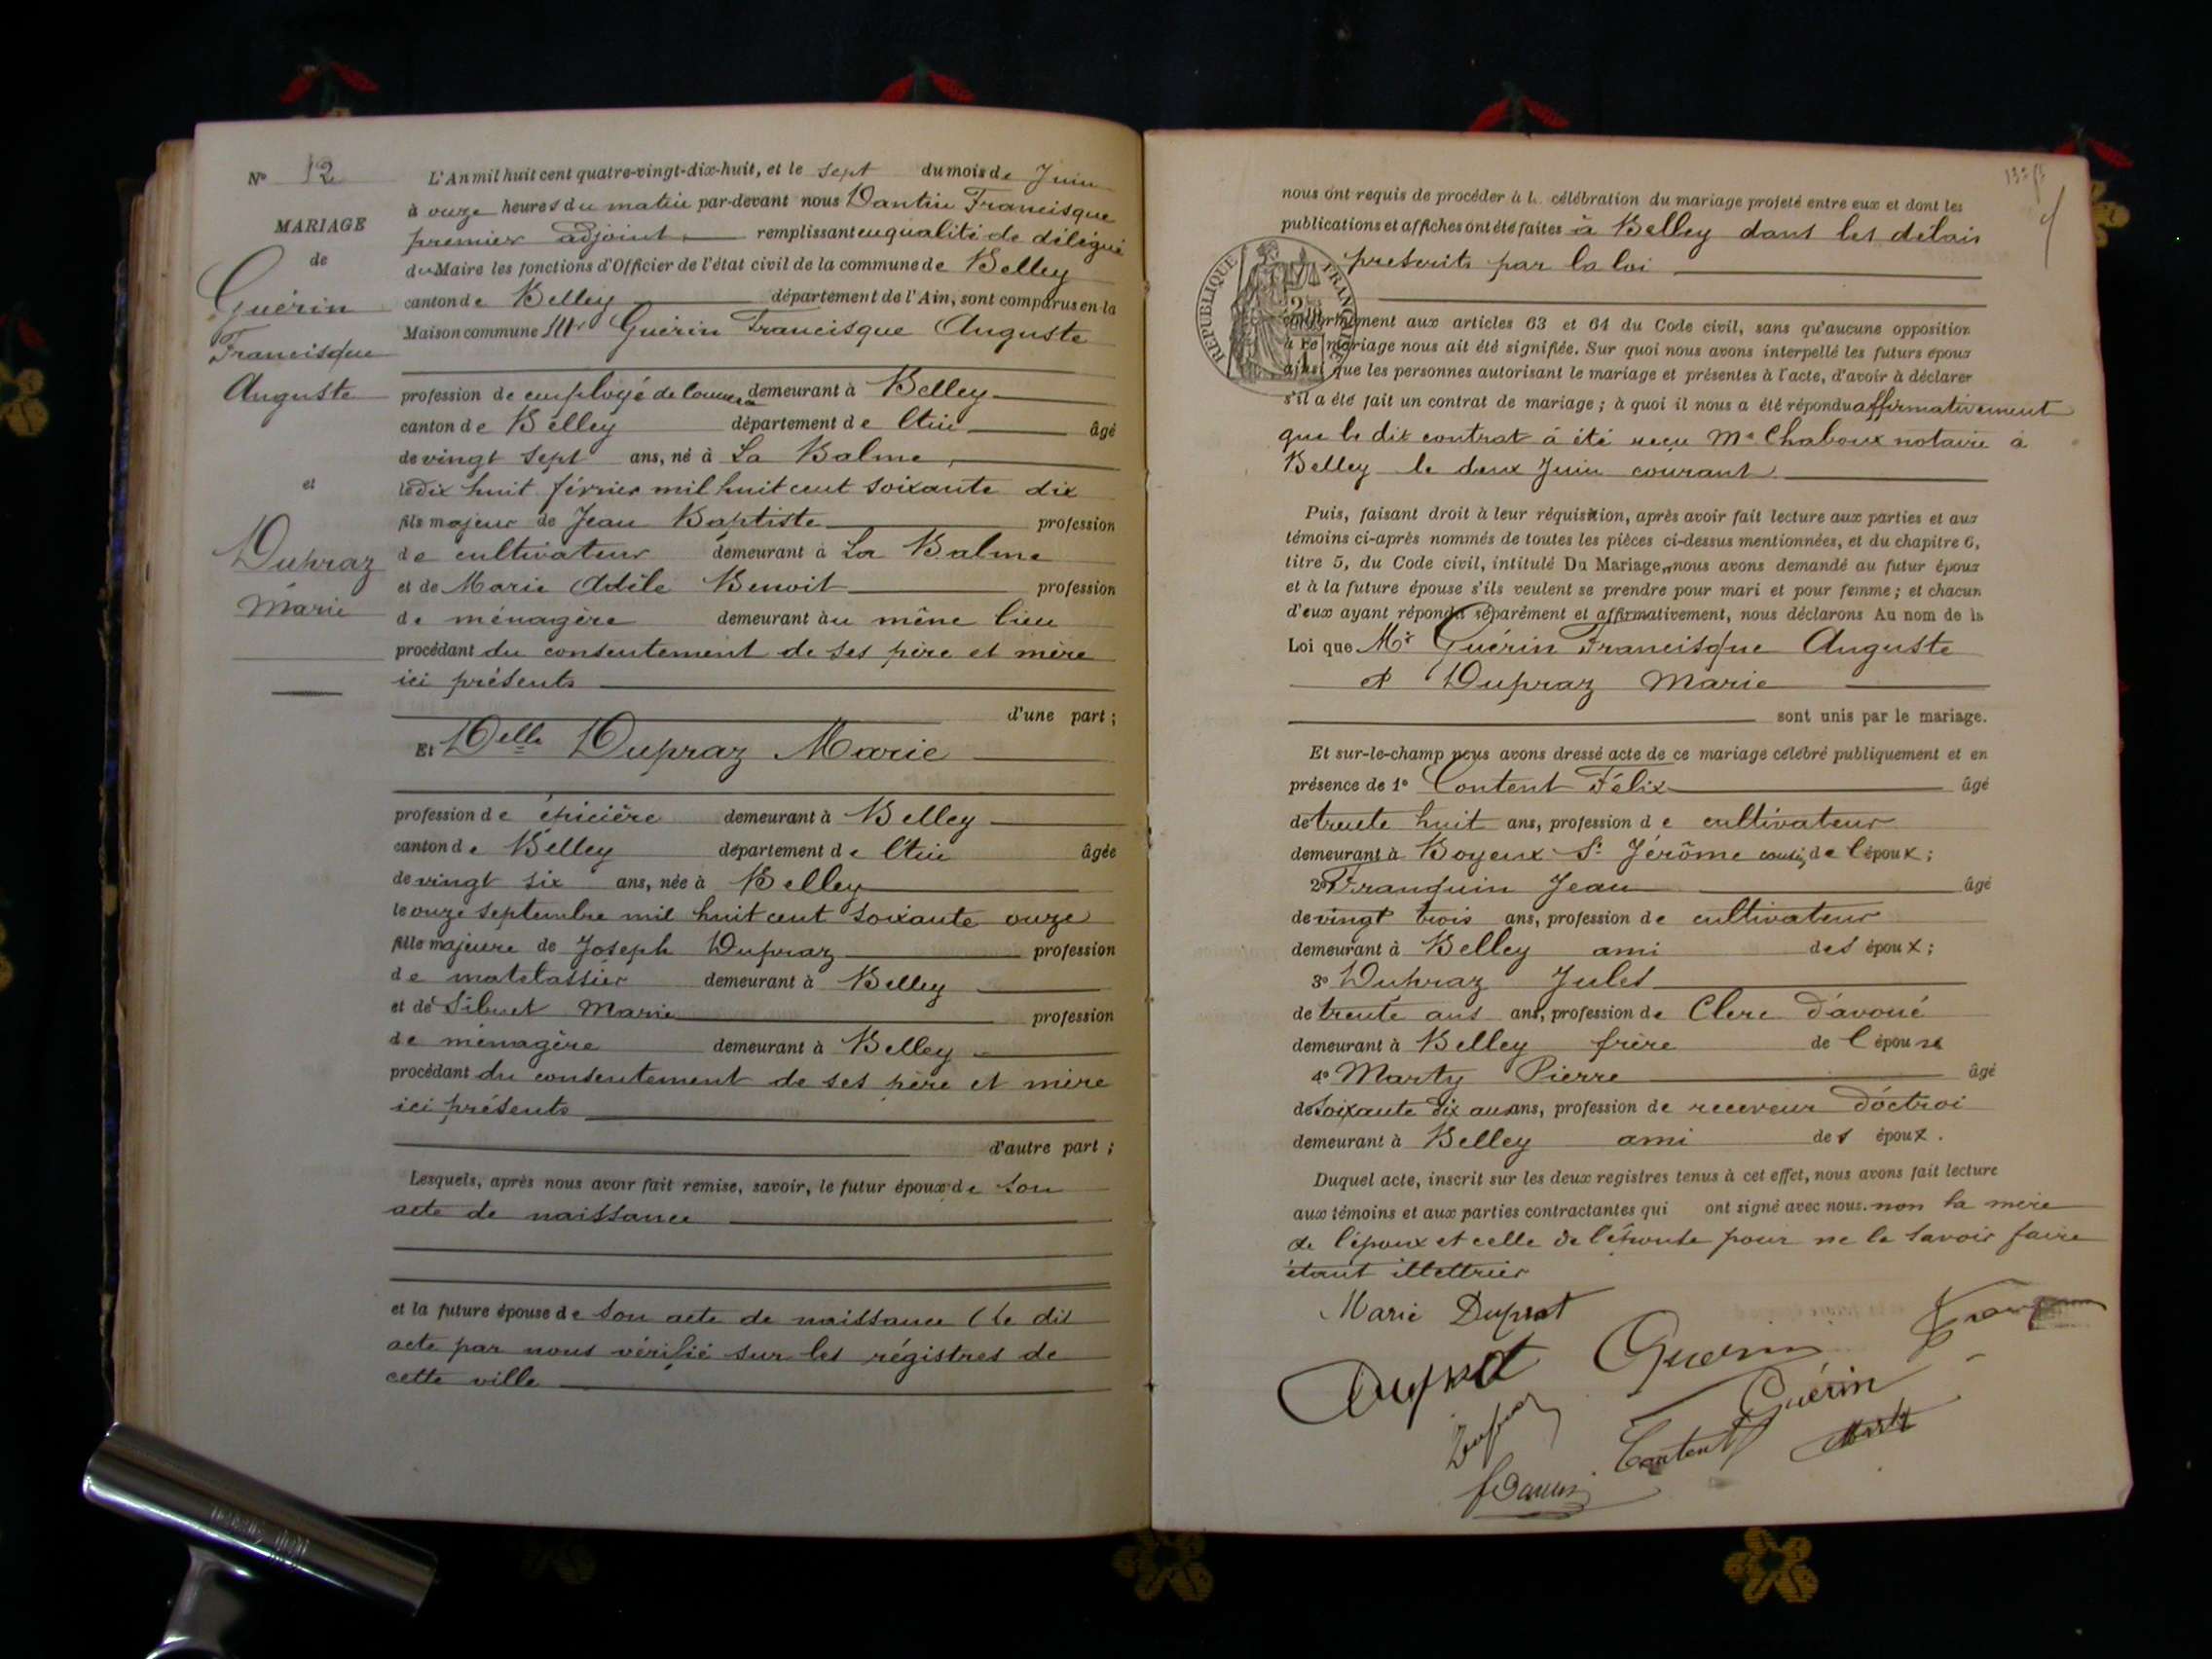 N° 12
MARIAGE
de
Guérin
Francisque
Auguste
et
Dupraz
Marie
L'An mil huit cent quatre-vingt-dix-huit, et le sept du mois de Juin
à onze heures du matin par-devant nous Dantin Francisque
premier adjoint remplissant en qualité de délégué
du Maire les fonctions d'Officier de l'état civil de la commune de Belley
canton de Belley département de l'Ain, sont comparus en la
Maison commune Mr Guérin Francisque Auguste
profession de employé de commerce demeurant à Belley
canton de Belley département de l'Ain âgé
de vingt sept ans, né à La Balme
le dix huit février mil huit cent soixante dix
fils majeur de Jean Baptiste profession
de cultivateur demeurant à La Balme
et de Marie Adèle Benoit profession
de ménagère demeurant au même lieu
procédant du consentement de ses père et mère
ici présents
d'une part ;
Et Delle Dupraz Marie
profession de épicière demeurant à Belley
canton de Belley département de l'Ain âgée
de vingt six ans, née à Belley
le onze septembre mil huit cent soixante onze
fille majeure de Joseph Dupraz profession
de matelassier demeurant à Belley
et de Sibuet Marie profession
de ménagère demeurant à Belley
procédant du consentement de ses père et mère
ici présents
d'autre part ;
Lesquels, après nous avoir fait remise, savoir, le futur époux de son
acte de naissance
et la future épouse de son acte de naissance (le dit
acte par nous vérifié sur les régistres de
cette ville
nous ont requis de procéder à la célébration du mariage projeté entre eux et dont les
publications et affiches ont été faites à Belley dans les délais
prescrits par la loi
RÉPUBLIQUE FRANÇAISE
conformément aux articles 63 et 64 du Code civil, sans qu'aucune opposition
à ce mariage nous ait été signifiée. Sur quoi nous avons interpellé les futurs époux
ainsi que les personnes autorisant le mariage et présentes à l'acte, d'avoir à déclarer
s'il a été fait un contrat de mariage ; à quoi il nous a été répondu affirmativement
que le dit contrat à été reçu Me Chaboux notaire à
Belley le deux Juin courant
Puis, faisant droit à leur réquisition, après avoir fait lecture aux parties et aux
témoins ci-après nommés de toutes les pièces ci-dessus mentionnées, et du chapitre 6,
titre 5, du Code civil, intitulé Du Mariage, nous avons demandé au futur époux
et à la future épouse s'ils veulent se prendre pour mari et pour femme ; et chacun
d'eux ayant répondu séparément et affirmativement, nous déclarons Au nom de la
Loi que Mr Guérin Francisque Auguste
et Dupraz Marie
sont unis par le mariage.
Et sur-le-champ nous avons dressé acte de ce mariage célébré publiquement et en
présence de 1° Content Félix âgé
de trente huit ans, profession de cultivateur
demeurant à Boyeux St Jérôme cousin de l'époux ;
2° Franquin Jean âgé
de vingt trois ans, profession de cultivateur
demeurant à Belley ami des époux ;
3° Dupraz Jules
de trente ans ans, profession de Clerc d'avoué
demeurant à Belley frère de l'épouse
4° Marty Pierre âgé
de soixante dix ans ans, profession de receveur d'octroi
demeurant à Belley ami des époux.
Duquel acte, inscrit sur les deux registres tenus à cet effet, nous avons fait lecture
aux témoins et aux parties contractantes qui ont signé avec nous. non la mère
de l'époux et celle de l'épouse pour ne le savoir faire
étant illettrées
Marie Duprat
Duprat Guerin
Dupraz Guérin
Content Marty
FDantin